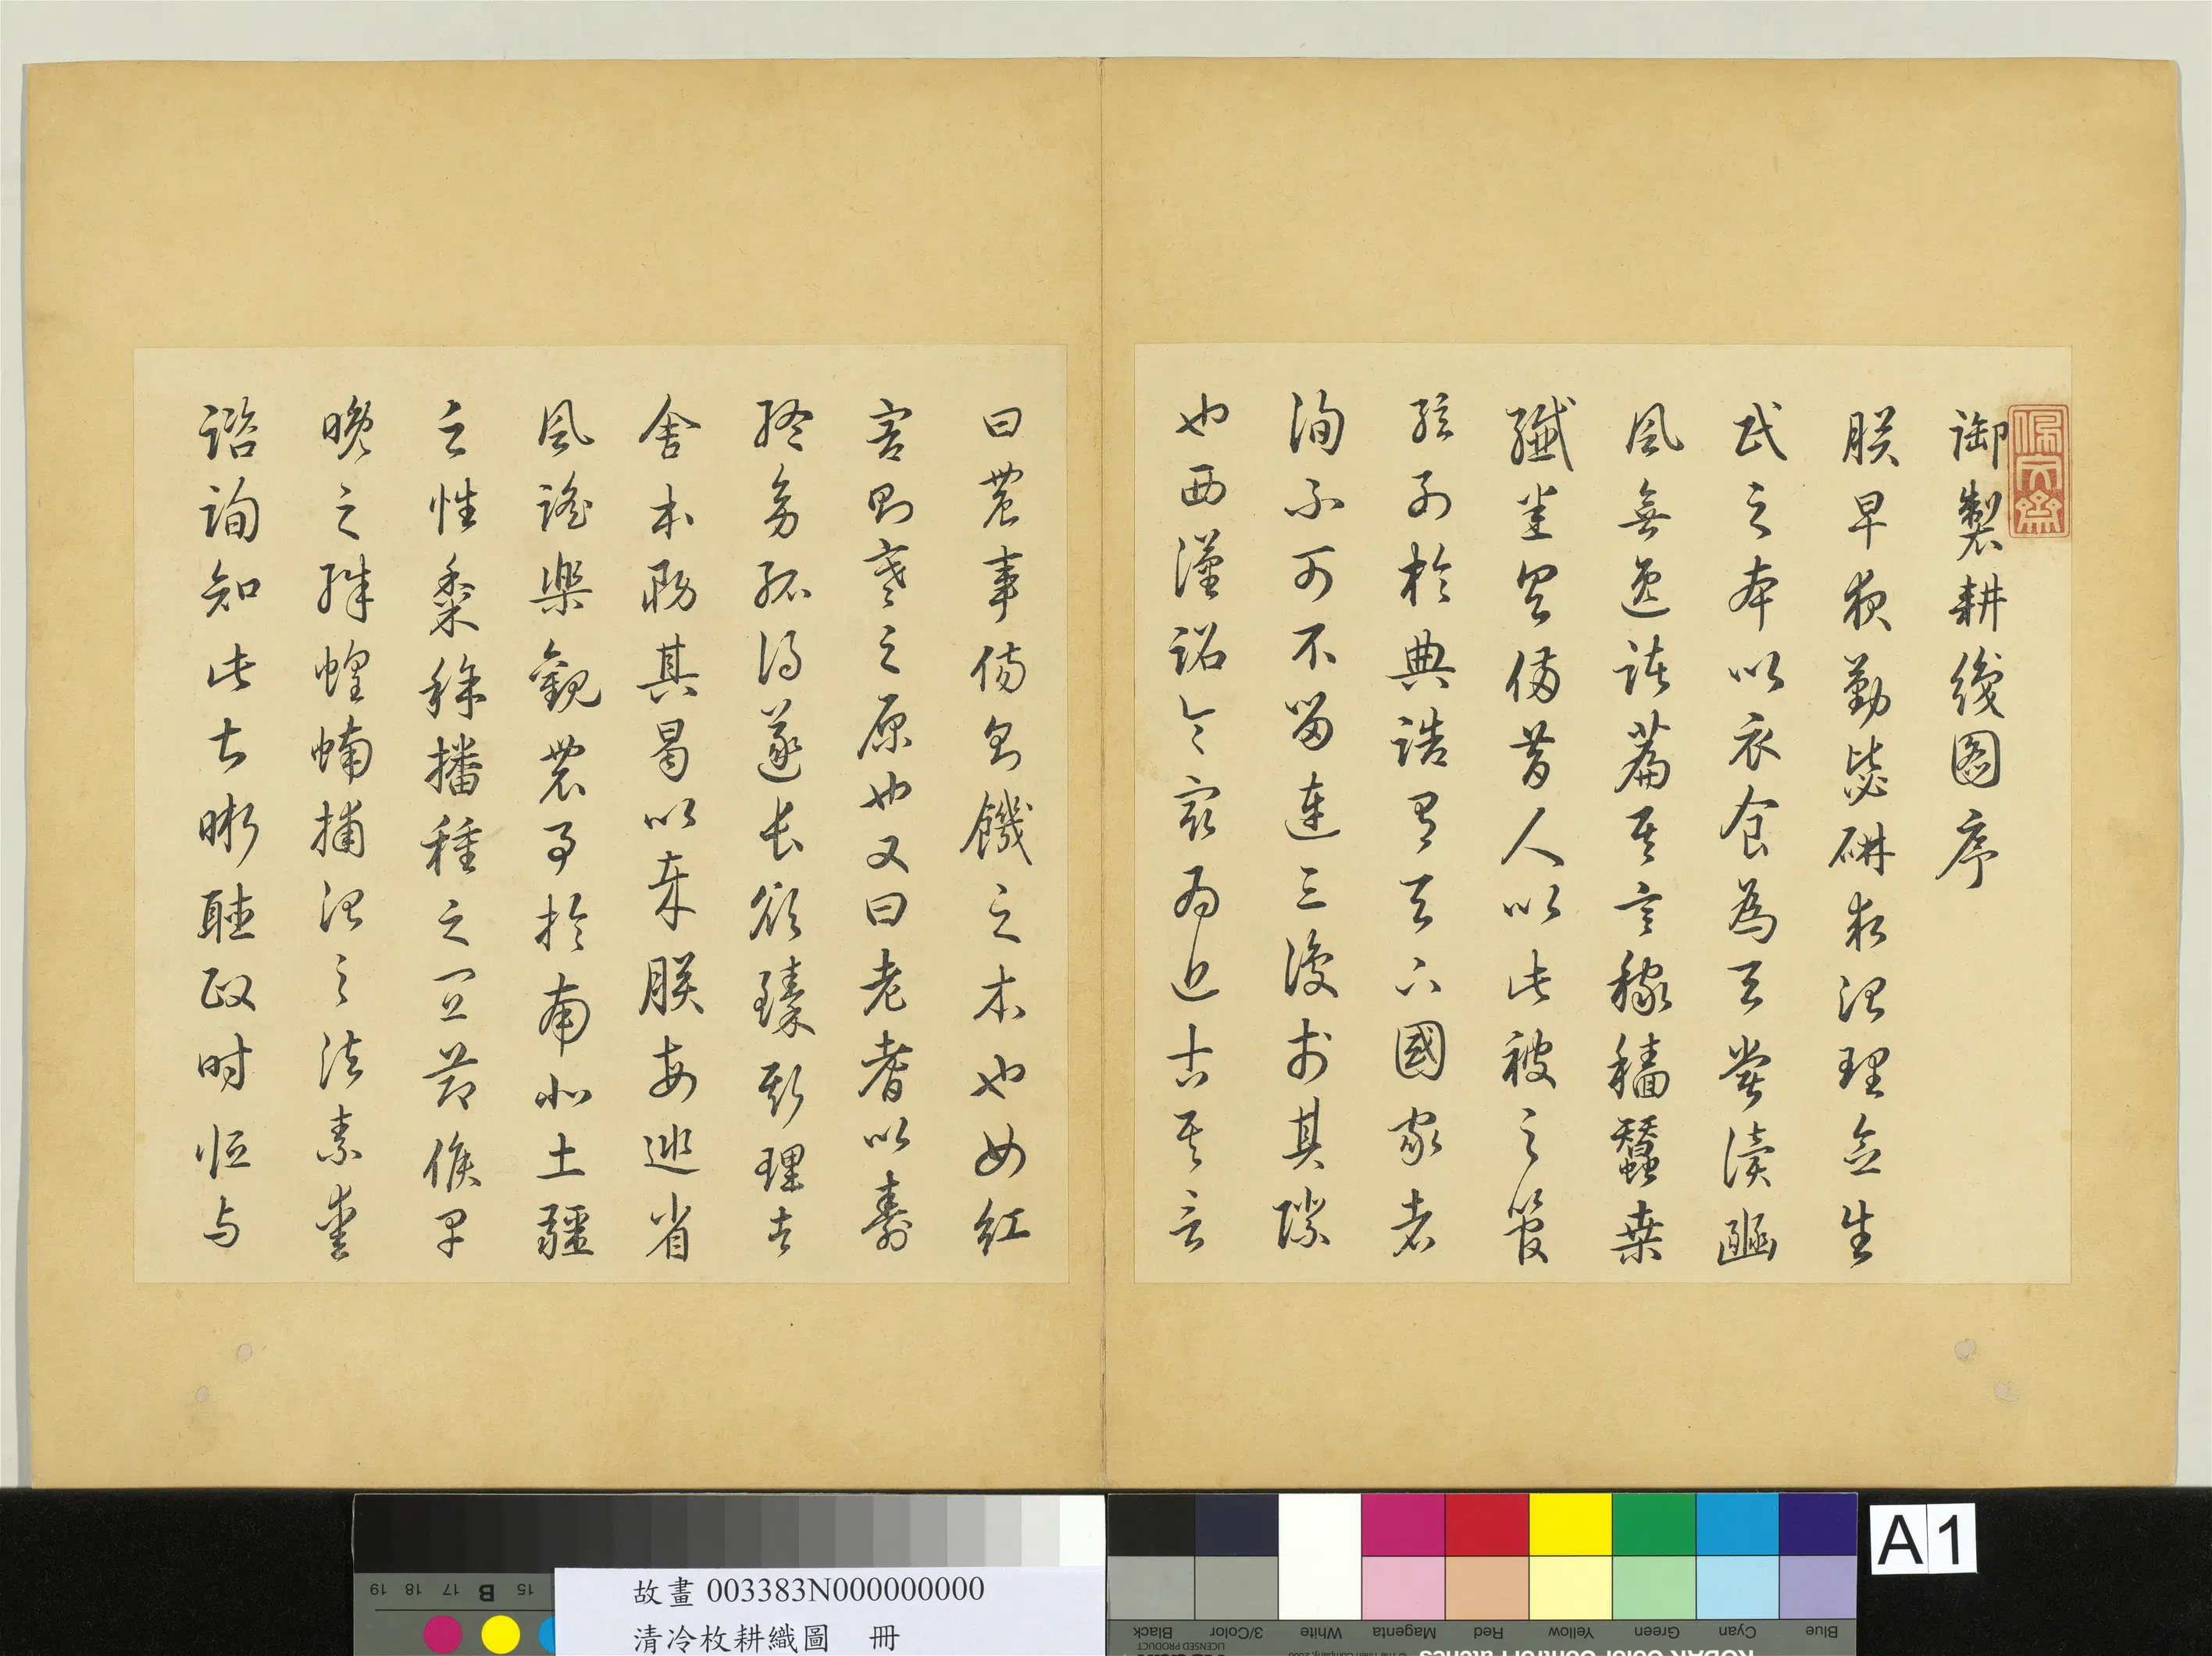 佩文齋
御製耕織圖序
朕早夜勤毖研求治理念生
民之本以衣食為天嘗讀豳
風無逸諸篇其言稼穡蠶桑
纖悉具備昔人以此被之管
弦列於典誥有天下國家者
洵不可不留連三復於其際
也西漢詔令最為近古其言
曰農事傷則饑之本也女紅
害則寒之原也又曰老耆以壽
終幼孤得遂長欲臻斯理者
舍本務其曷以哉朕每巡省
風謠樂觀農事於南北土疆
之性黍稌播種之宜節候早
晚之殊蝗蝻捕治之法素愛
諮詢知此甚晰聽政時恒与
故畫 003383N000000000
清冷枚耕織圖 冊
19 18 17 B 15
Black 3/Color White Magenta Red Yellow Green Cyan Blue
LICENSED PRODUCT
A 1